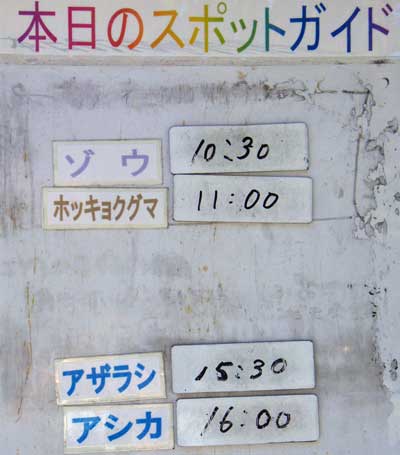 本日のスポットガイド
ゾウ 10:30
ホッキョクグマ 11:00
アザラシ 15:30
アシカ 16:00